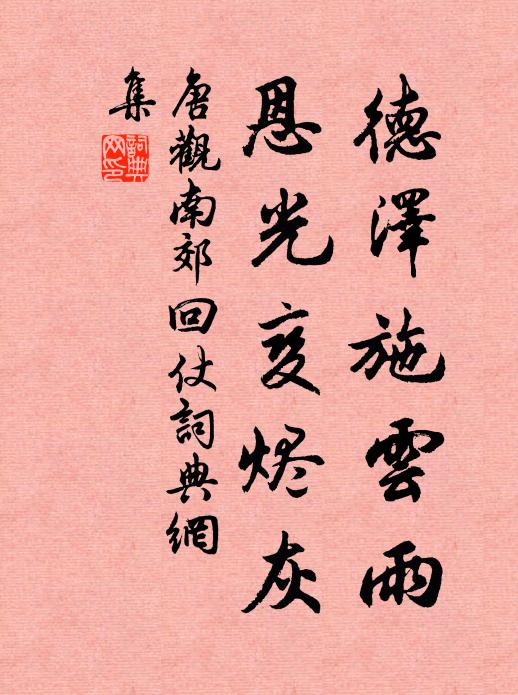 德澤施雲雨
恩光变烬灰
唐觀南郊回仗詞典網
集
詞典
网印